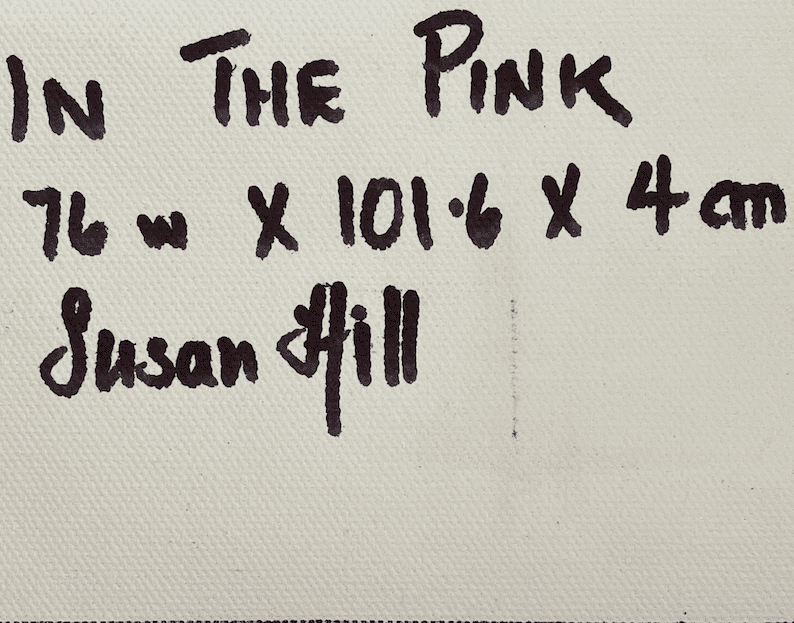 IN THE PINK
76 w X 101.6 X 4 cm
Susan Hill